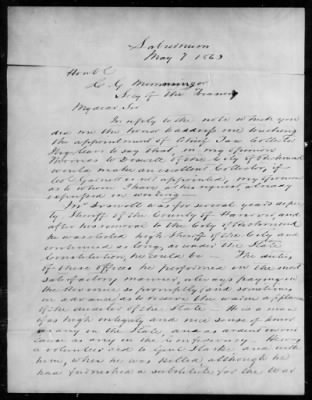 May 7 1863
Honble
C. G. Memminger
Secy of the Treasury
My dear Sir
In reply to the note which you
did me the honor to address me touching
the appointment of Chief Tax Collector
I beg leave to say that in my opinion
Thomas of the City of Richmond
would make an excellent Collector, if
is not appointed, my opinion
as to whom I have already
expressed in writing
Mr was for several years deputy
Sheriff of the County of Hanover, and
after his removal to the City of Richmond
he was elected high Sheriff of the City and
continued as long, as under the State
Constitution, he could be — The duties
of these offices he performed in the most
satisfactory manner, always paying in
the Revenue so promptly and sometimes
in advance as to receive the warm applause
of the of the State — He is a man
of as high integrity and nice sense of honor
as any in the State, and as ardent in our
cause as any in the Confederacy. Being
a volunteer aid to Genl Starke and with
him, when he was killed although he
has furnished a substitute for the war